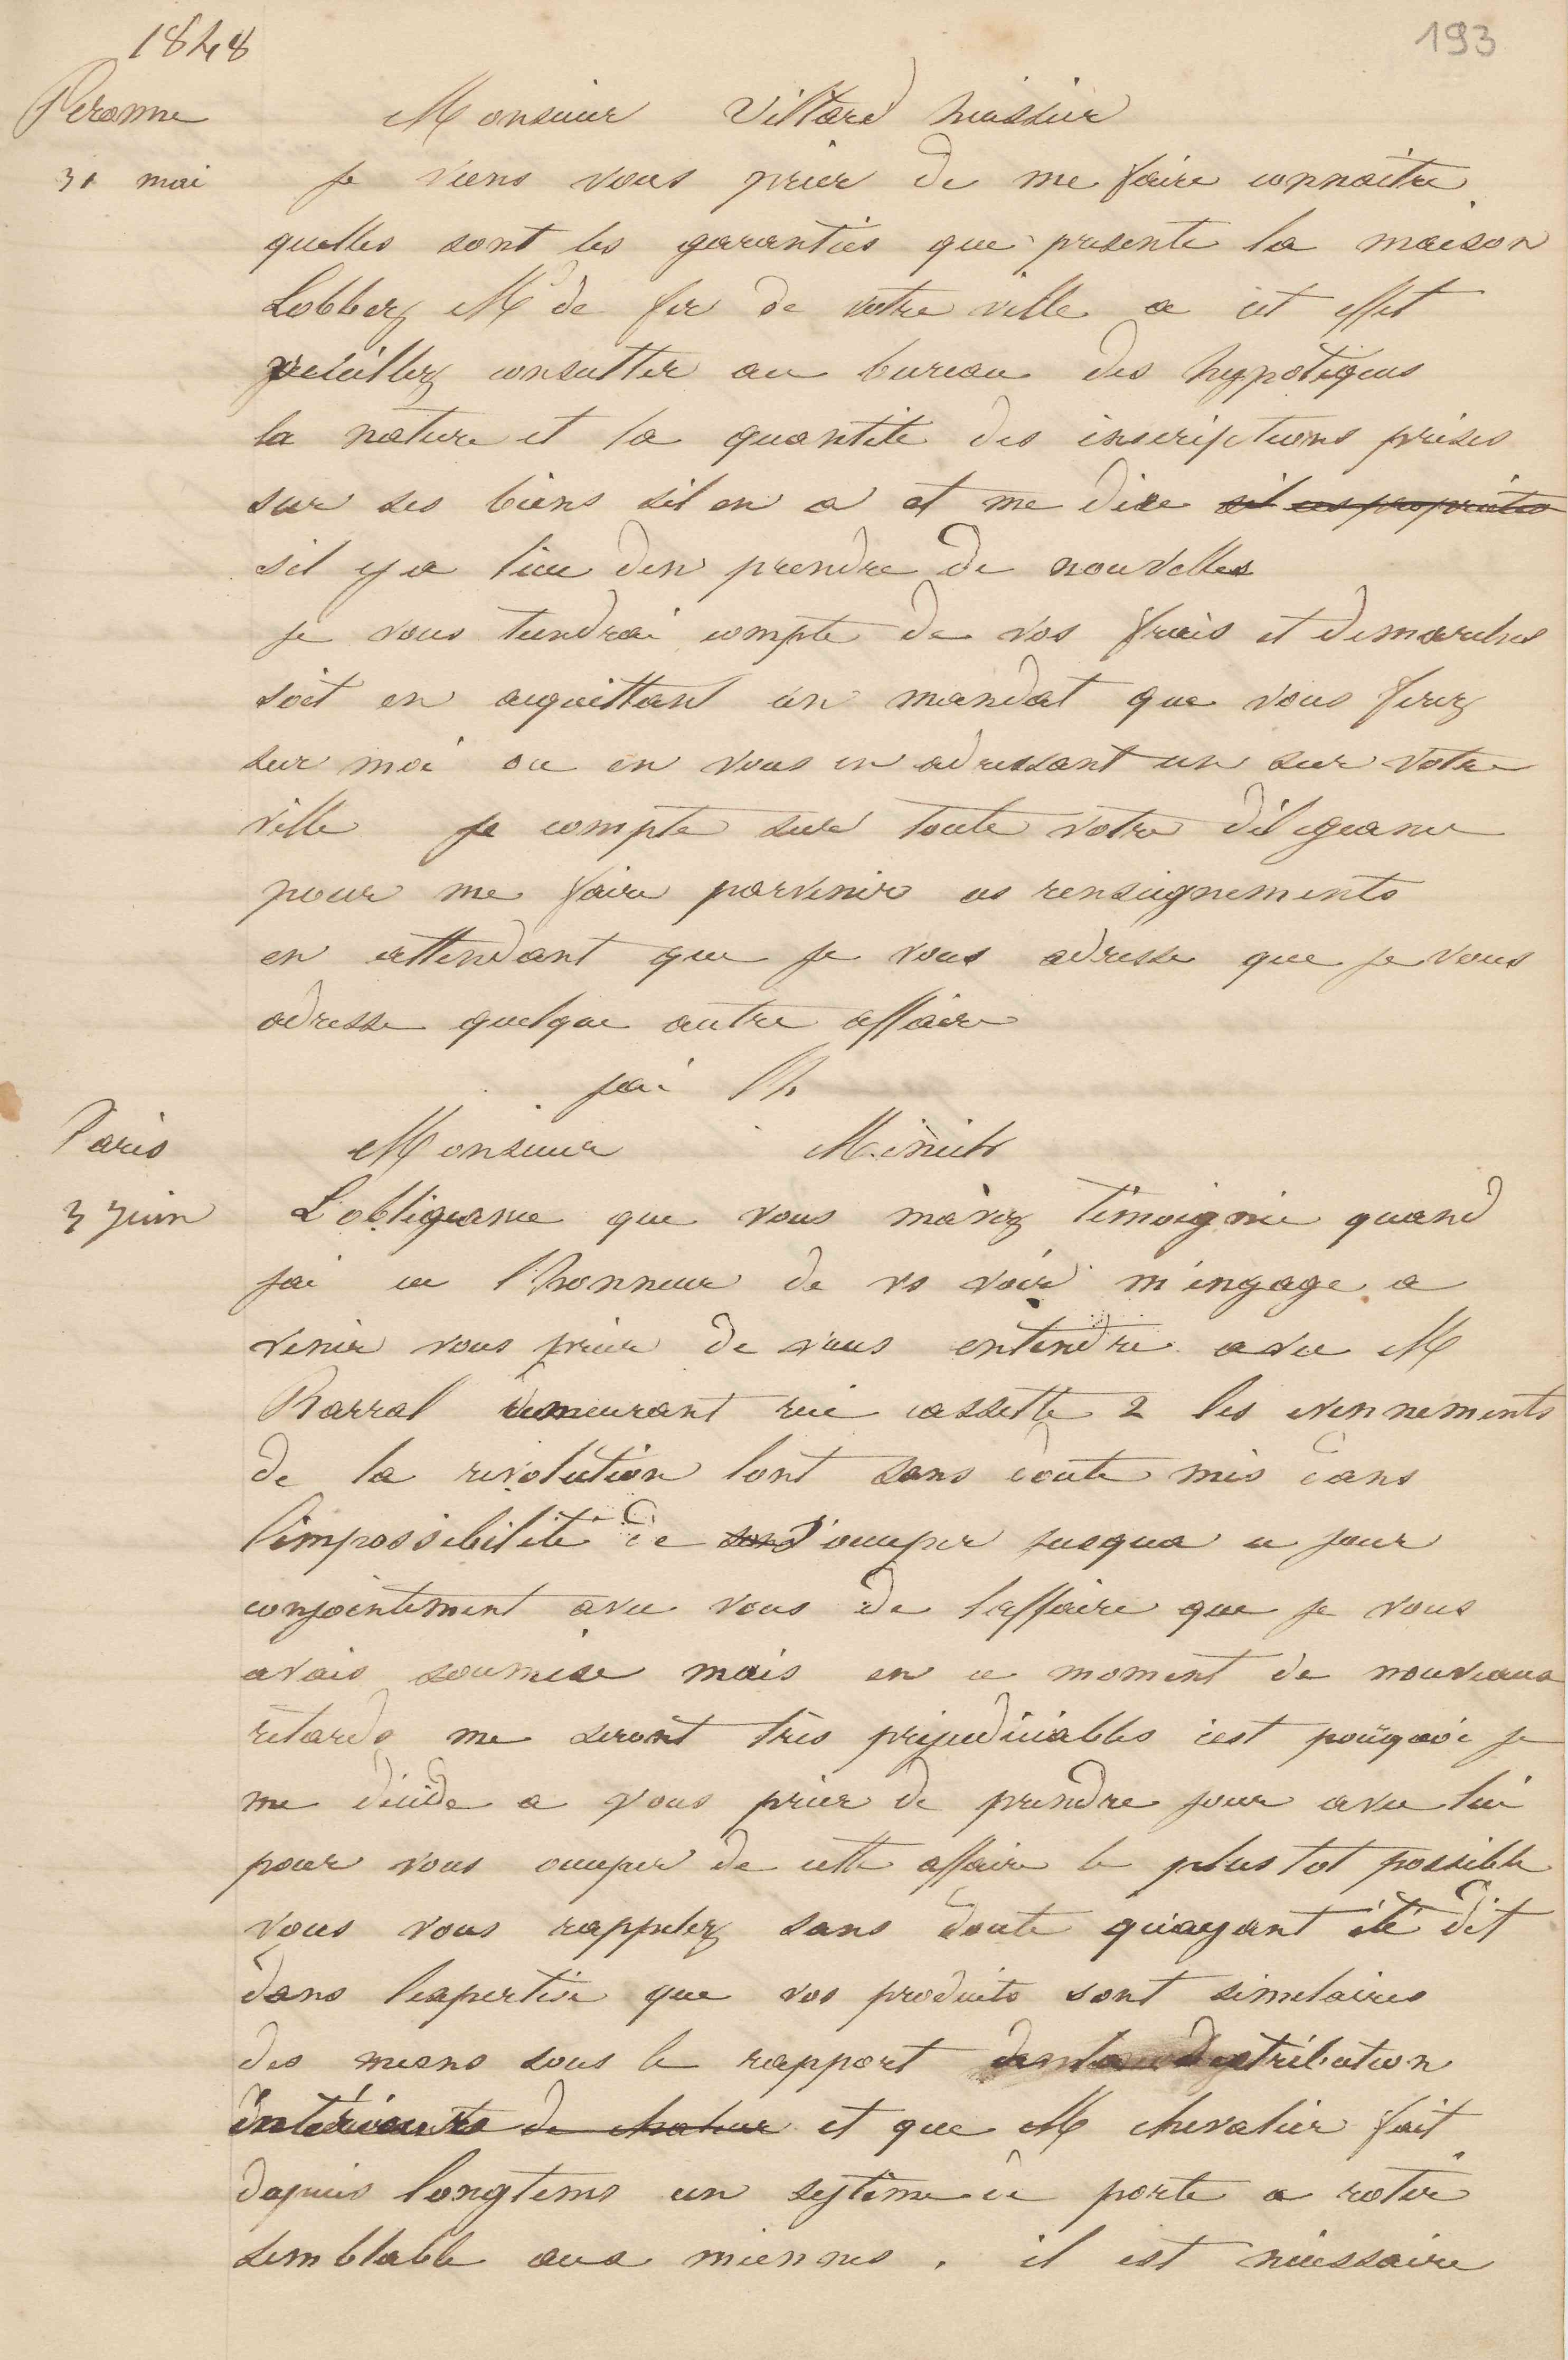 1848
193
Peronne
Monsieur Villard huissier
31 mai
je viens vous prier de me faire connaitre
quelles sont les garanties que presente la maison
Lobberz Md de fer de votre ville a cet effet
veuillez consulter au bureau des hypotèques
la nature et la quantité des inscriptions prises
sur ses biens sil en a et me dire sil ces propriétés
sil y a lieu den prendre de nouvelles
je vous tiendrai compte de vos frais et demarches
soit en acquittant un mandat que vous ferez
sur moi ou en vous en adressant un sur votre
ville je compte sur toute votre diligeance
pour me faire parvenir ces renseignements
en attendant que je vous adresse que je vous
adresse quelque autre affaire
jai lh
Paris
Monsieur Minich
3 Juin
Lobligeance que vous mavez témoignée quand
jai eu lhonneur de vs voir m'engage a
venir vous prier de vous entendre avec M
Barral demeurant rue cassette 2 les evennements
de la revolution lont sans doute mis dans
limpossibilité de s'occuper jusqua ce jour
conjointement avec vous de laffaire que je vous
avais soumise mais en ce moment de nouveaux
retards me seront très prejudiciables cest pourquoi je
me décide a vous prier de prendre jour avec lui
pour vous occuper de cette affaire le plus tot possible
vous vous rappelez sans doute qu'ayant été dit
dans lexpertise que vos produits sont similaires
des miens sous le rapport de la distribution
intérieure de chaleur et que M chevalier fait
depuis longtems un système de porte a rotir
semblable aux miennes . il est nécessaire